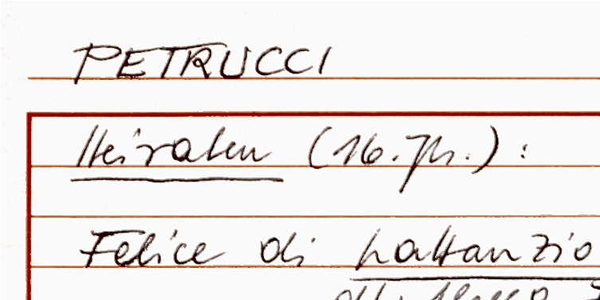 PETRUCCI
Heiraten (16. Jh.) :
Felice di Lattanzio